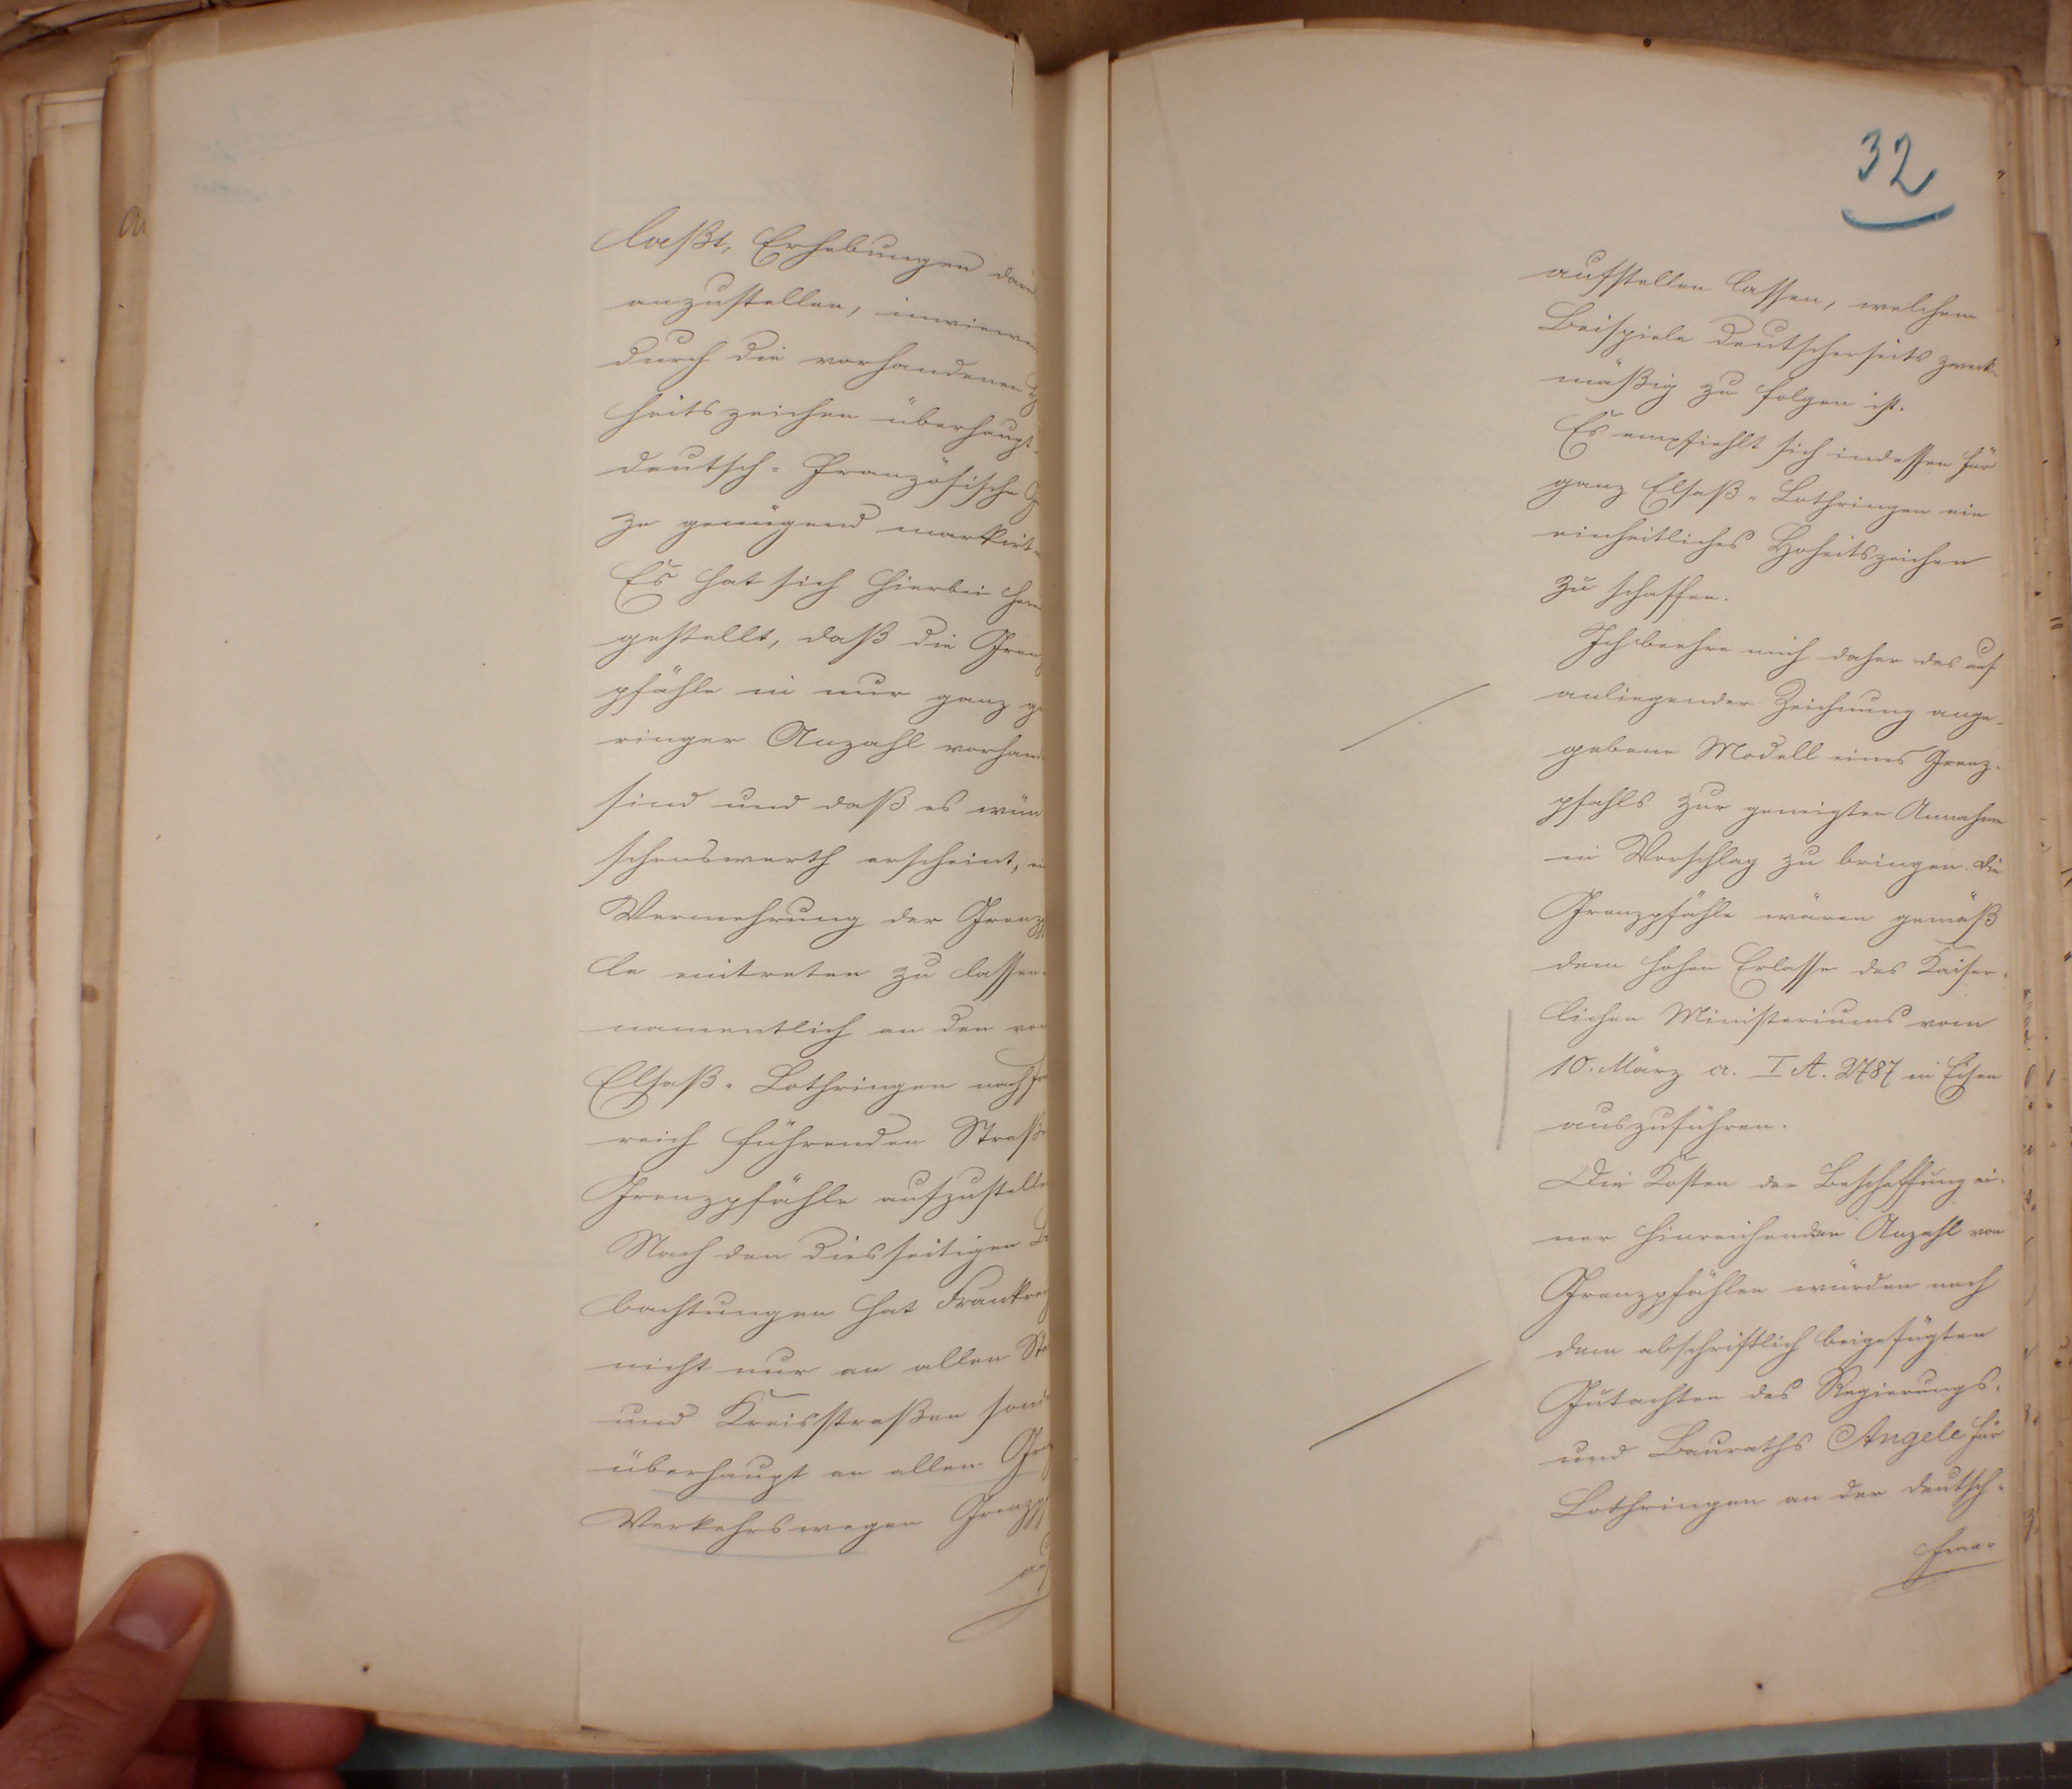 laßt, Erhebungen
anzustellen,
durch die vorhandenen
heitszeichen überhaupt
deutsch-französische
ze genügend markirt
Es hat sich hierbei
gestellt, daß die Grenz
pfähle in nur ganz ge
ringer Anzahl vorhan
sind und daß es wün
schenswerth erscheint,
Vermehrung der Grenzpf
le eintreten zu lassen
namentlich an den von
Elsaß-Lothringen nach
reich führenden Straße
Grenzpfähle aufzustelle
Nach den diesseitigen
bachtungen hat Frankrei
nicht nur an allen St
und Kreisstraßen sond
überhaupt an allen Gren
Verkehrswegen Grenzpf
auf
32
aufstellen lassen, welchem
Beispiele deutscherseits zweck-
mäßig zu folgen ist.
Es empfiehlt sich indessen für
ganz Elsaß-Lothringen ein
einheitliches Hoheitszeichen
zu schaffen.
Ich beehre mich daher das auf
anliegender Zeichnung ange-
gebene Modell eines Grenz-
pfahls zur geneigten Annahme
in Vorschlag zu bringen. Die
Grenzpfähle wären gemäß
dem hohen Erlasse des Kaiser-
lichen Ministeriums vom
10. März cr. I A. 2787 in Eisen
auszuführen.
Die Kosten der Beschaffung ei-
ner hinreichenden Anzahl von
Grenzpfählen würden nach
dem abschriftlich beigefügten
Gutachten des Regierungs-
und Bauraths Angele für
Lothringen an der deutsch-
fran-